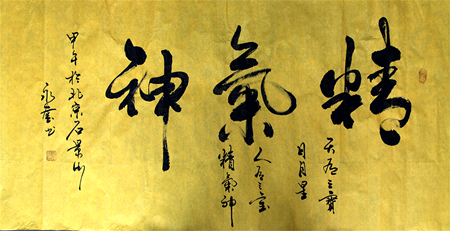 精氣神
天有三寶
日月星
人有三寶
精氣神
甲午於北京石景山
永　书